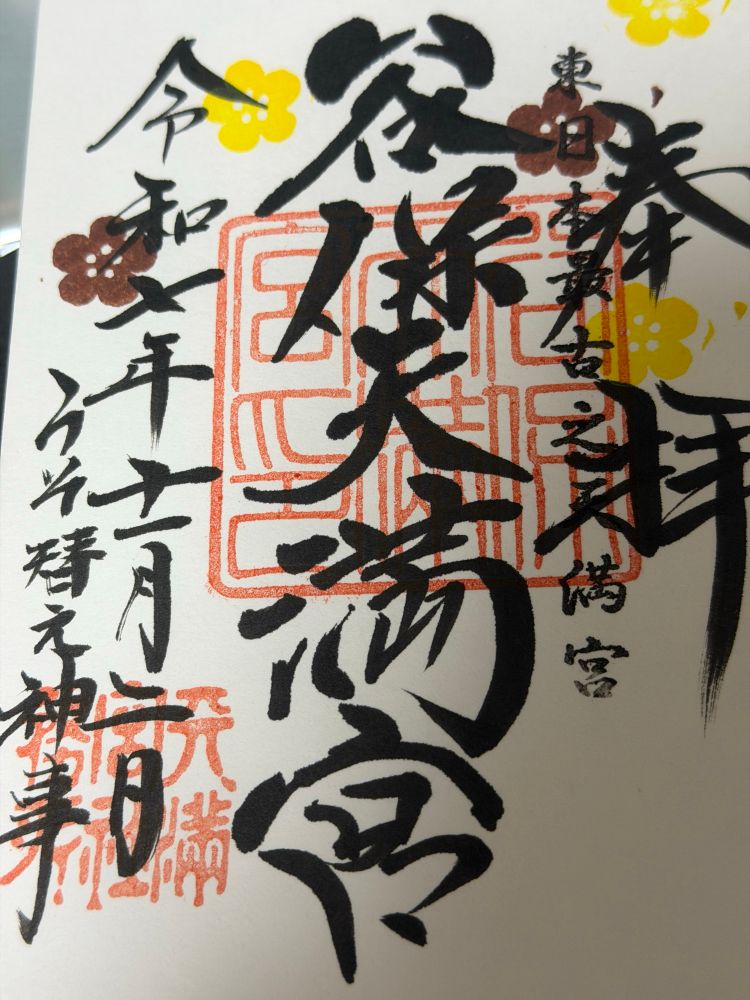 奉拝
東日本最古之天満宮
谷保天満宮
令和七年十一月二日
うそ替え神事
天満
宮社
務所